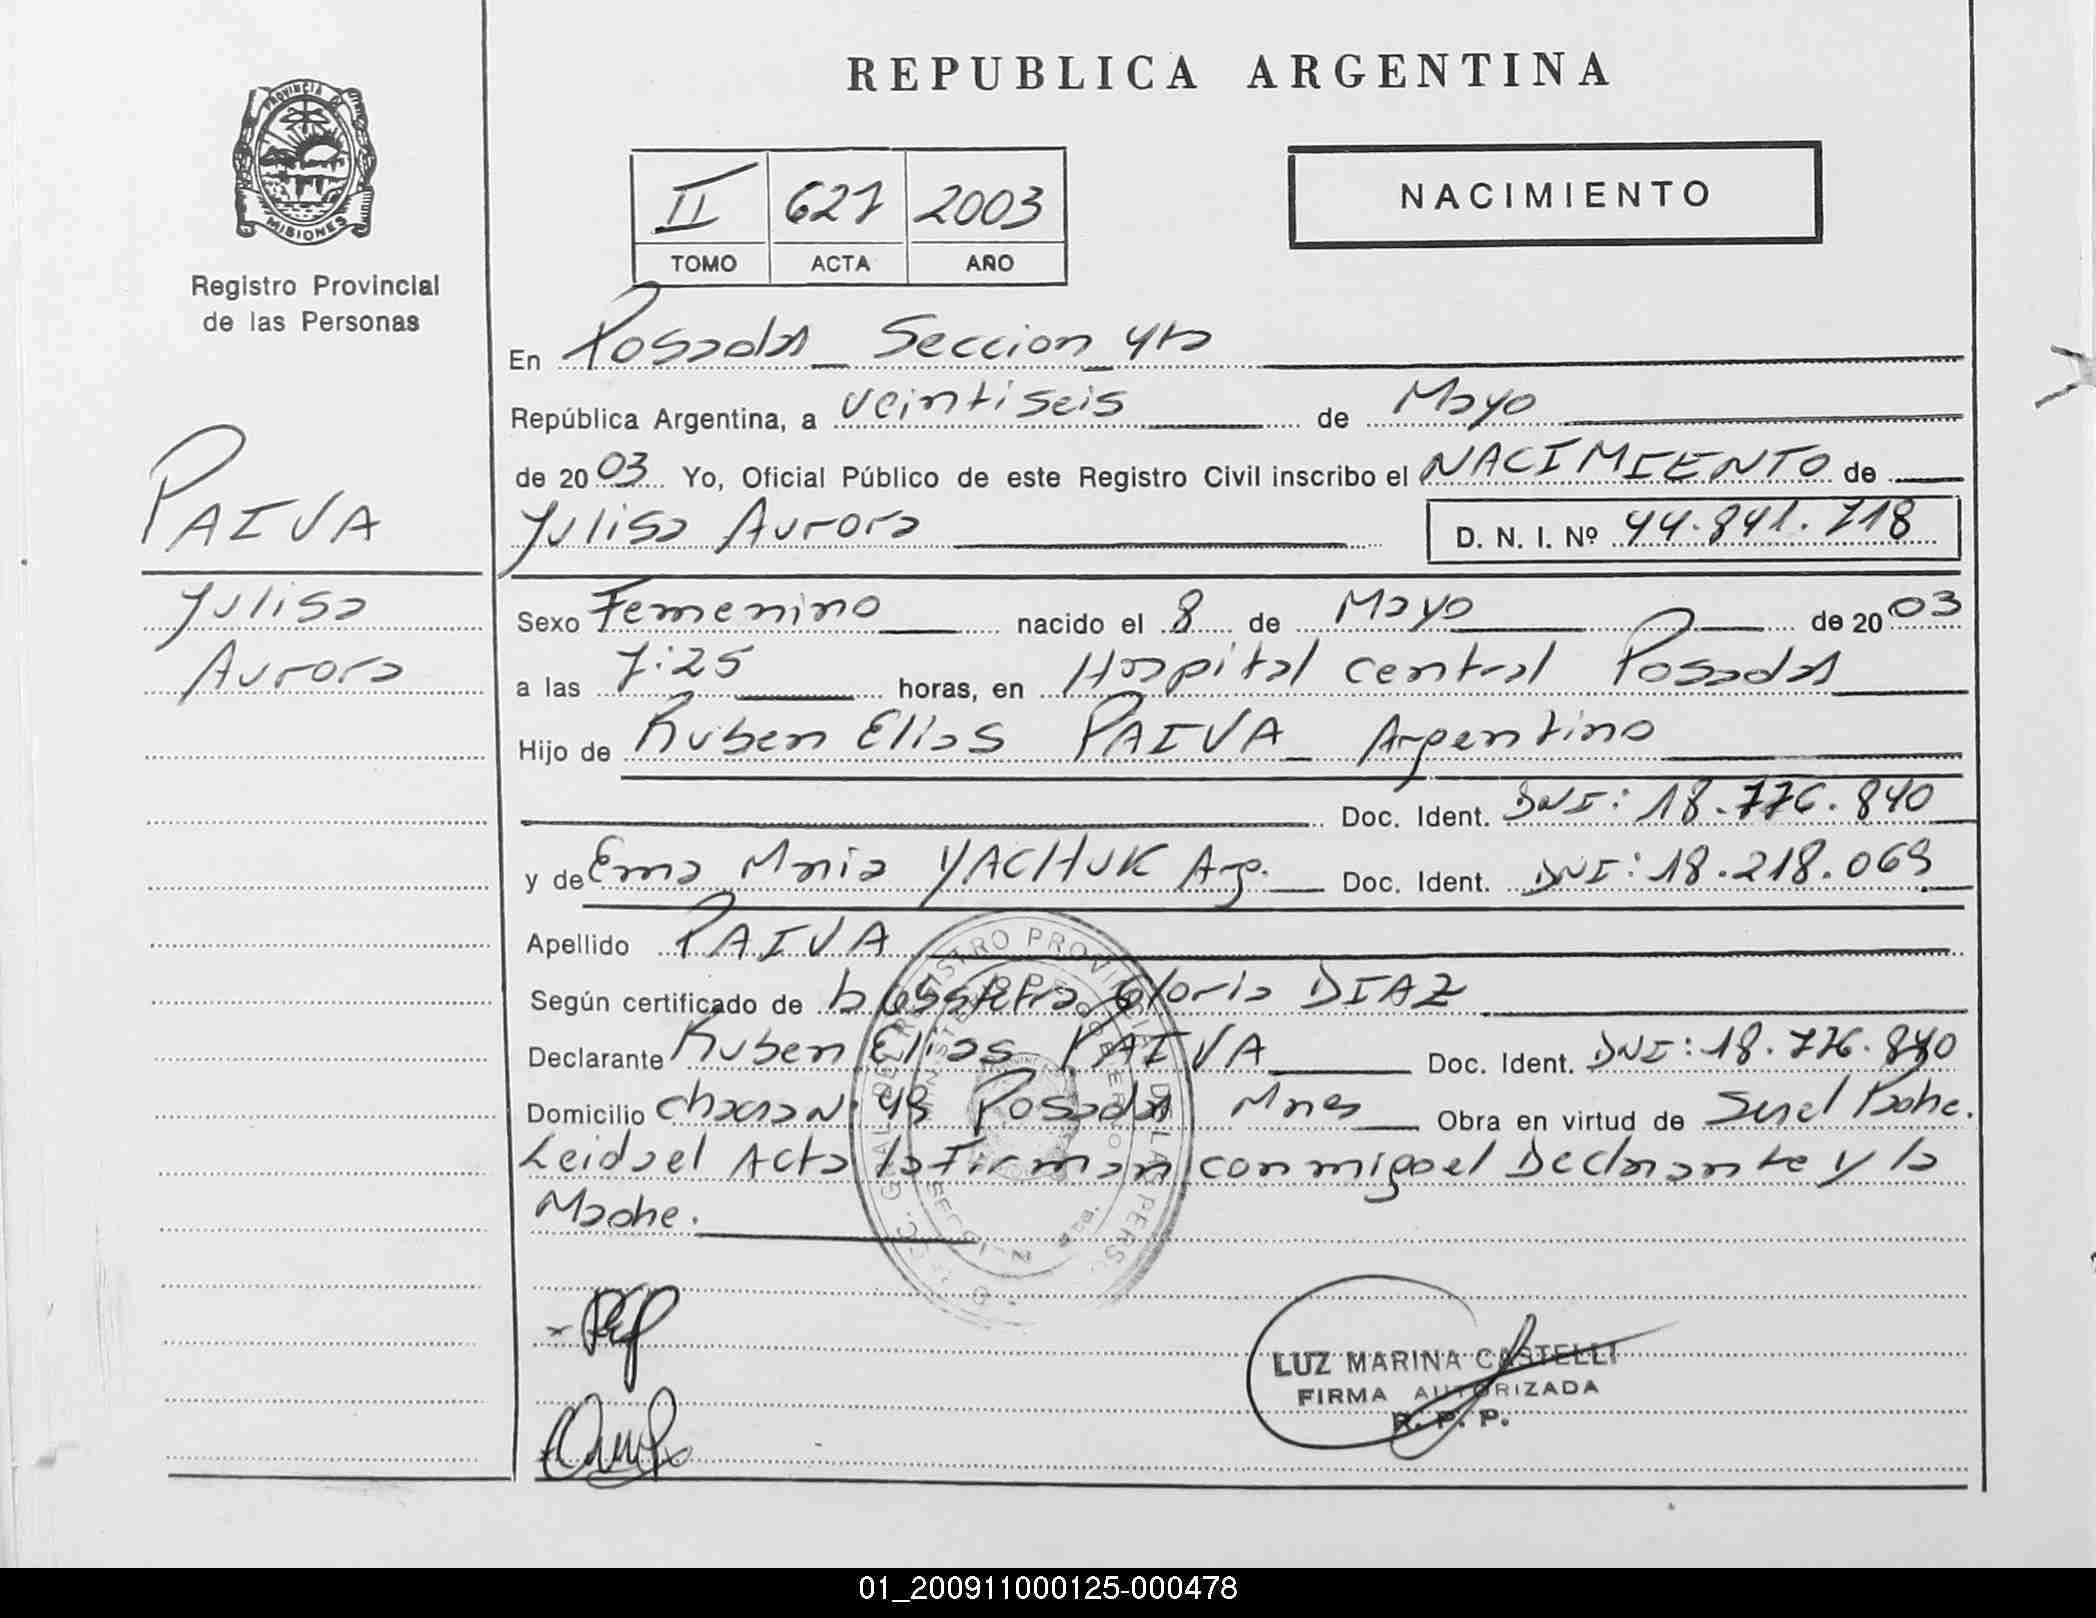 REPUBLICA ARGENTINA
PROVINCIA DE
MISIONES
Registro Provincial
de las Personas
II 627 2003
TOMO ACTA AÑO
NACIMIENTO
En Posadas Seccion 4ta
República Argentina, a veintiseis de Mayo
de 2003 Yo, Oficial Público de este Registro Civil inscribo el NACIMIENTO de
Yulisa Aurora D. N. I. Nº 44.841.718
PAIVA
Yulisa
Aurora
Sexo Femenino nacido el 8 de Mayo de 2003
a las 7:25 horas, en Hospital central Posadas
Hijo de Ruben Elias PAIVA Argentino
Doc. Ident. DNI: 18.776.840
y de Ema Mria YACHUK Arg. Doc. Ident. DNI: 18.218.069
Apellido PAIVA
Según certificado de Gloria DIAZ
Declarante Ruben Elias PAIVA Doc. Ident. DNI: 18.776.840
Domicilio Posadas Mnes Obra en virtud de
Leida el Acta la Firman conmigo el Declarante y la
Madre.
LUZ MARINA CASTELLI
FIRMA AUTORIZADA
R. P. P.
01_200911000125-000478